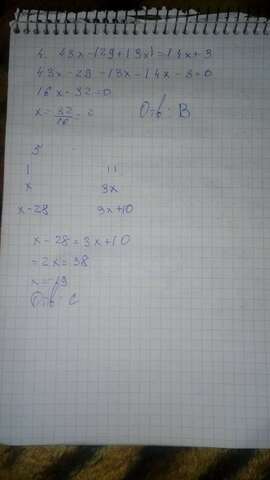 4. 43x-(29+13x)=14x+3
43x-29-13x-14x-3=0
16x-32=0
x=32/16=2 Отв: B
5
I II
x 3x
x-28 3x+10
x-28=3x+10
=2x=38
x=19
Отв: C